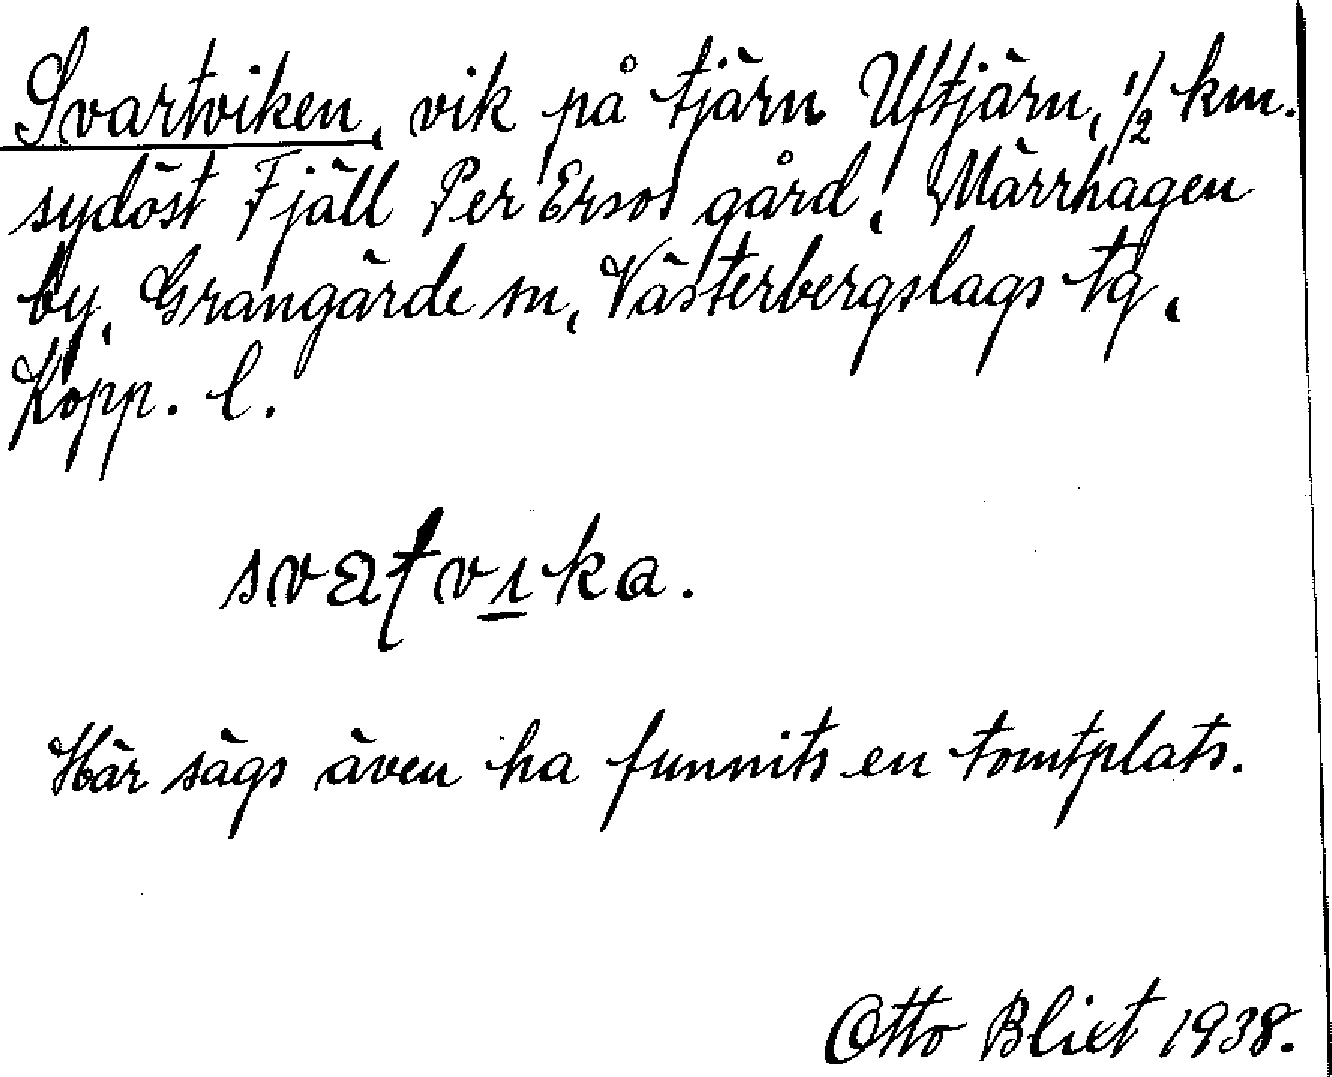 Svartviken, vik på tjärn Uftjärn, 1/2 km.
sydöst Fjäll Per Ersos gård, Märrhagen
by, Grangärde sn, Västerbergslags tg,
Kopp. l.
svaƭvıka.
Här sägs även ha funnits en tomtplats.
Otto Blixt 1938.